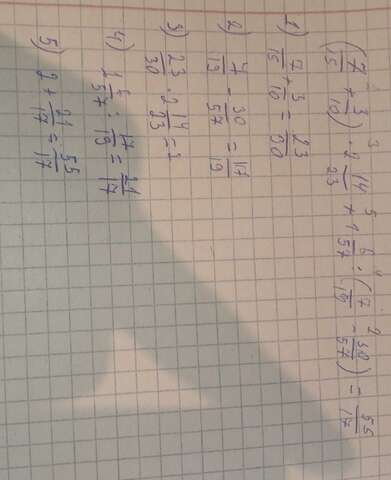 3 5 4 2
(7/15 + 3/10) · 2 14/23 + 1 6/57 : (7/19 - 30/57) = 55/17
1) 7/15 + 3/10 = 23/30
2) 7/19 - 30/57 = 17/19
3) 23/30 · 2 14/23 = 2
4) 1 6/57 : 17/19 = 21/17
5) 2 + 21/17 = 55/17